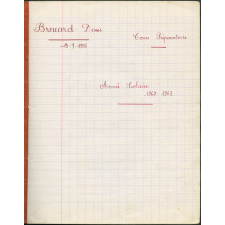 Brouard Denis
Cours Préparatoire
Année Scolaire
1962 1963